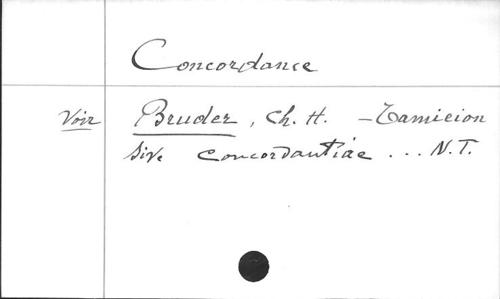 Concordance
Voir Bruder, Ch. H. - Tamieion
sive concordantiae ... N.T.